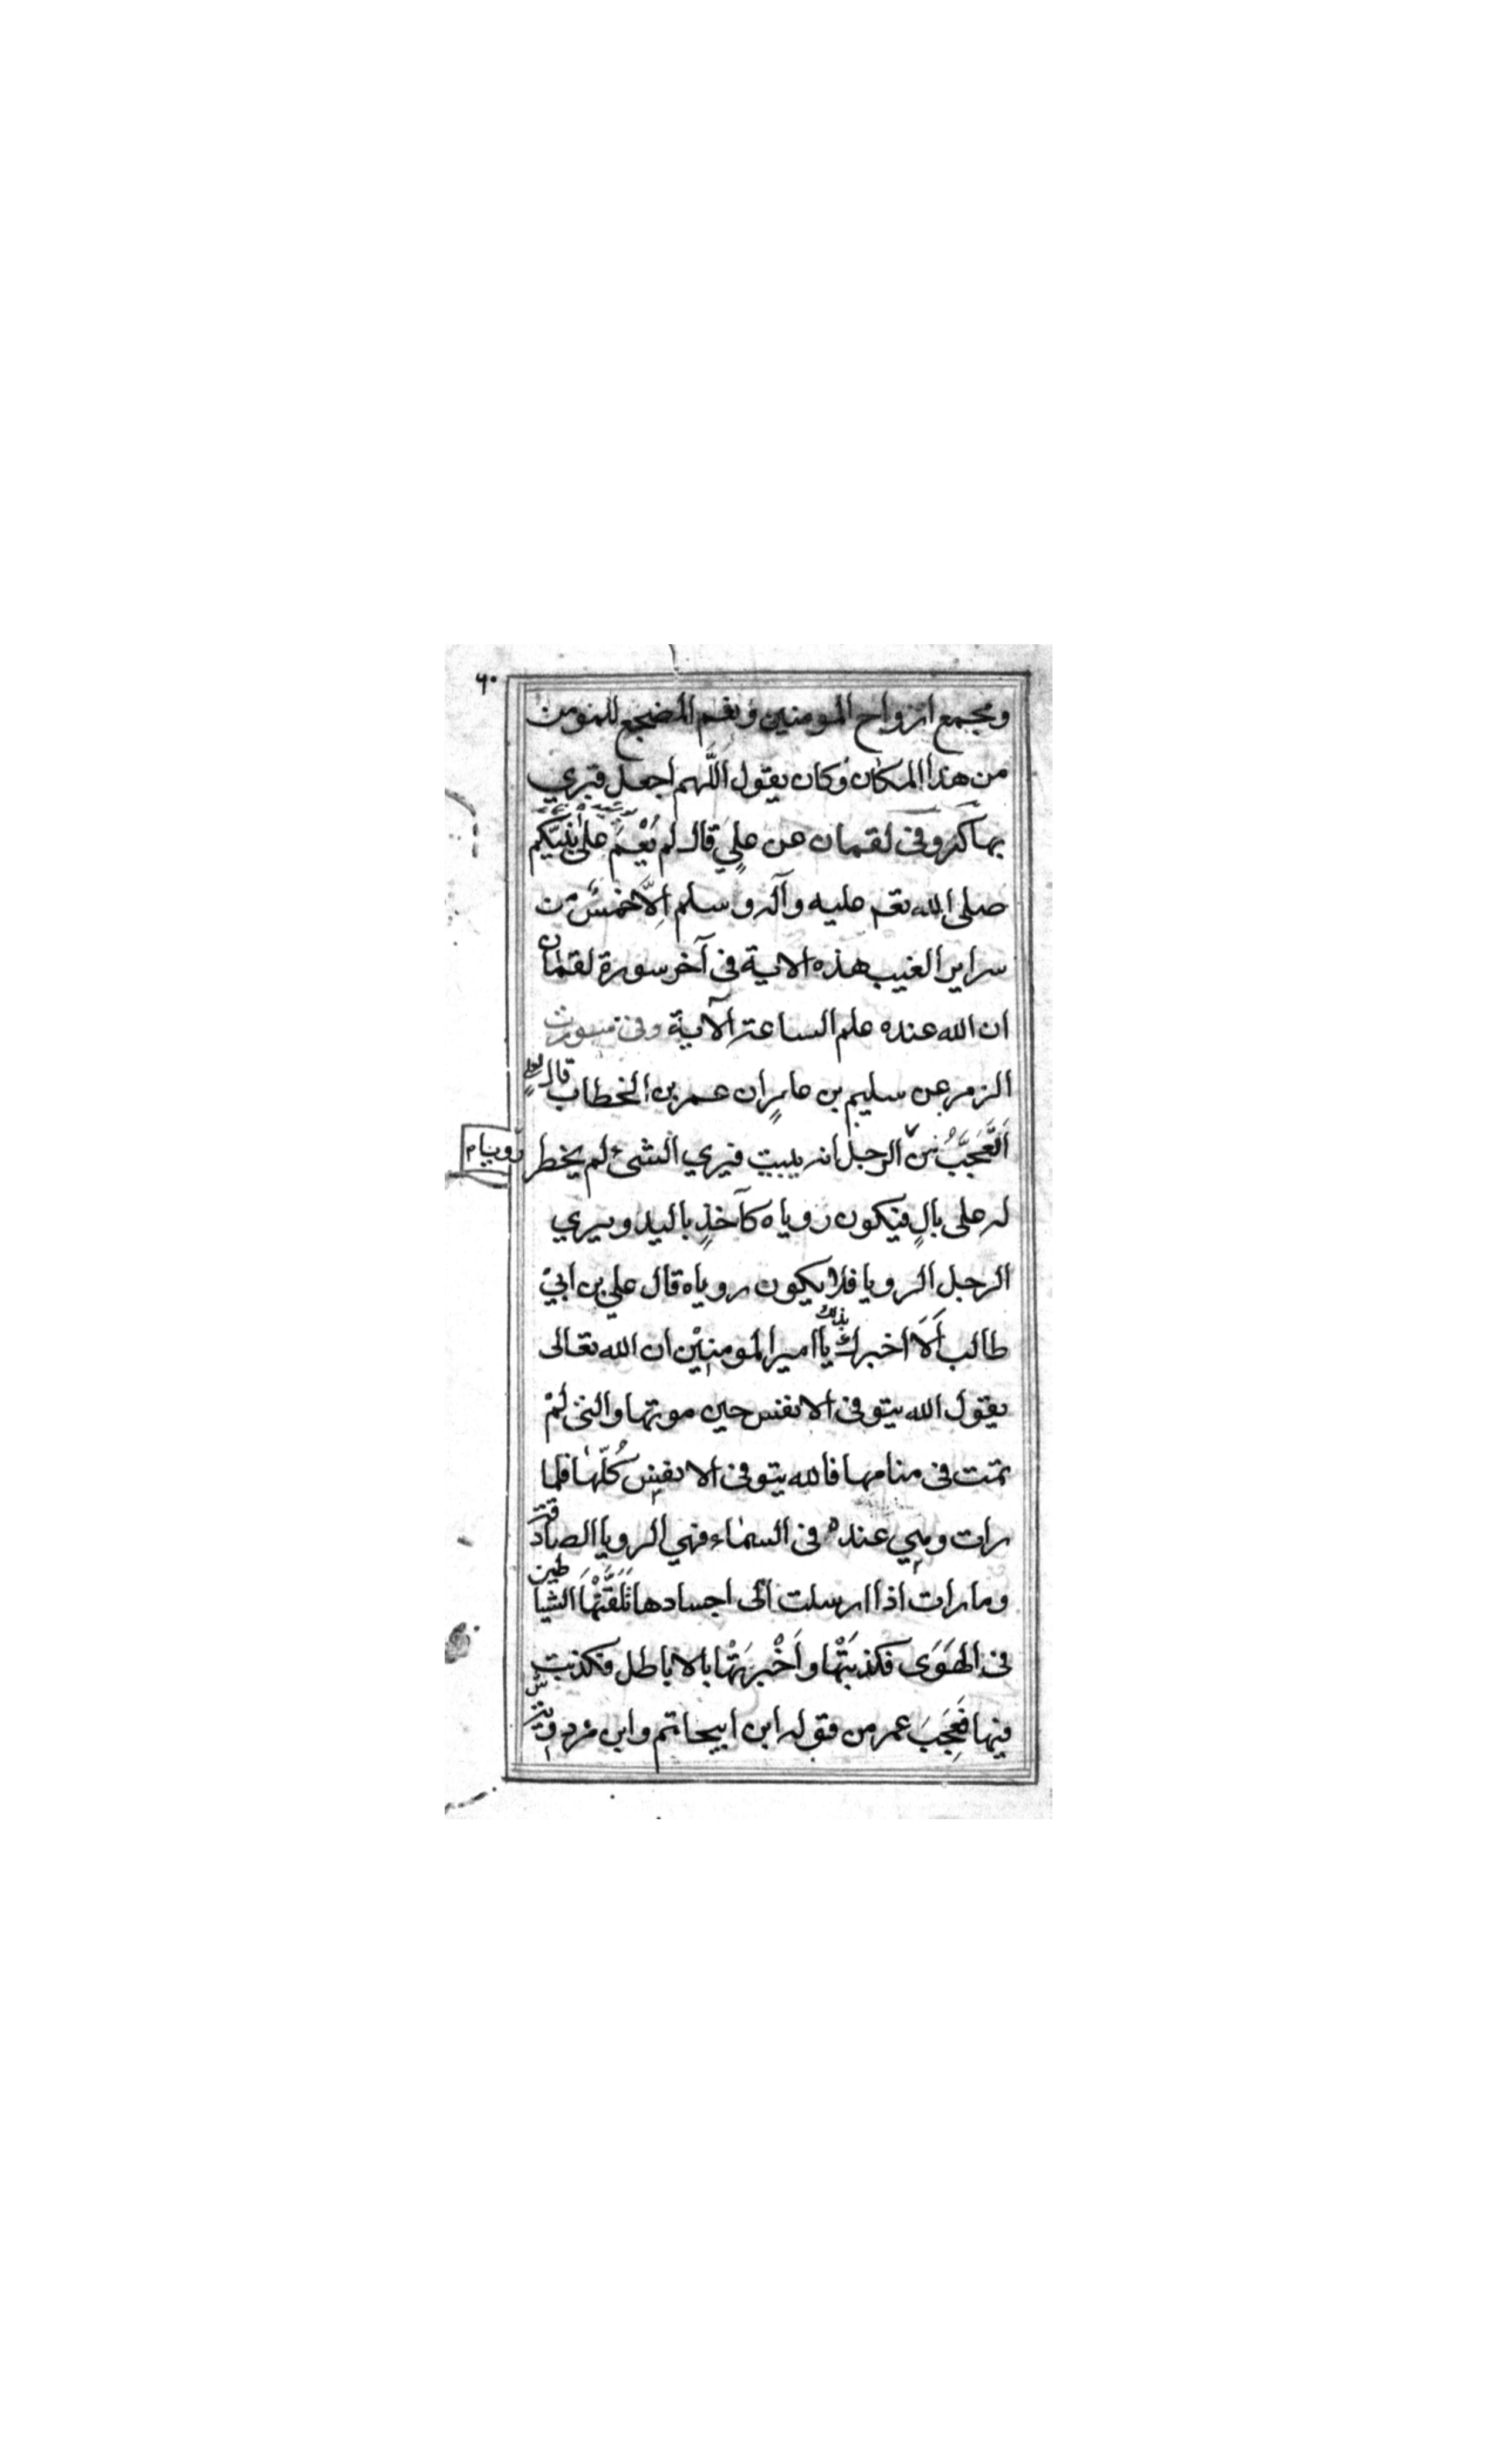 ٦٠
ومجمع ارواح المومنين ونعم المضجع للمومن
من هذا المكان وكان يقول اللّهم اجعل قبري
بها كذ وفى لقمان عن علي قال لم يُعْمَ على نبيّكم
صلى الله تعم عليه وآله وسلم اِلَّا خمسٌ من
سراير الغيب هذه الاية فى آخر سورة لقمان
ان الله عنده علم الساعة الآية وفى سورة
الزمر عن سليم بن عامرٍ ان عمر بن الخطاب قال
اَلعَجَبُ من الرجل انه يبيت فيري الشئ لم يخطر
رويام
له على بالٍ فيكون روياه كآخذٍ باليد ويري
الرجل الرويا فلا يكون روياه قال علي بن ابيْ
طالب اَلَا اخبرك بذلك يا امير المومنين ان الله تعالى
يقول الله يتوفى الانفس حين موتها والتى لمْ
تمت فى منامها فالله يتوفى الانفس كُلّها فما
رات وهي عنده فى السماء فهي الرويا الصادقة
وما رات اذا ارسلت الى اجسادها تَلَقَّتْهَا الشياطين
فى الهَوَى فكذبَتْها واَخْبرَتْها بالاباطل فكذبت
فيها فَعَجِبَ عمر من قوله ابن ابيحاتم وابن مردويه